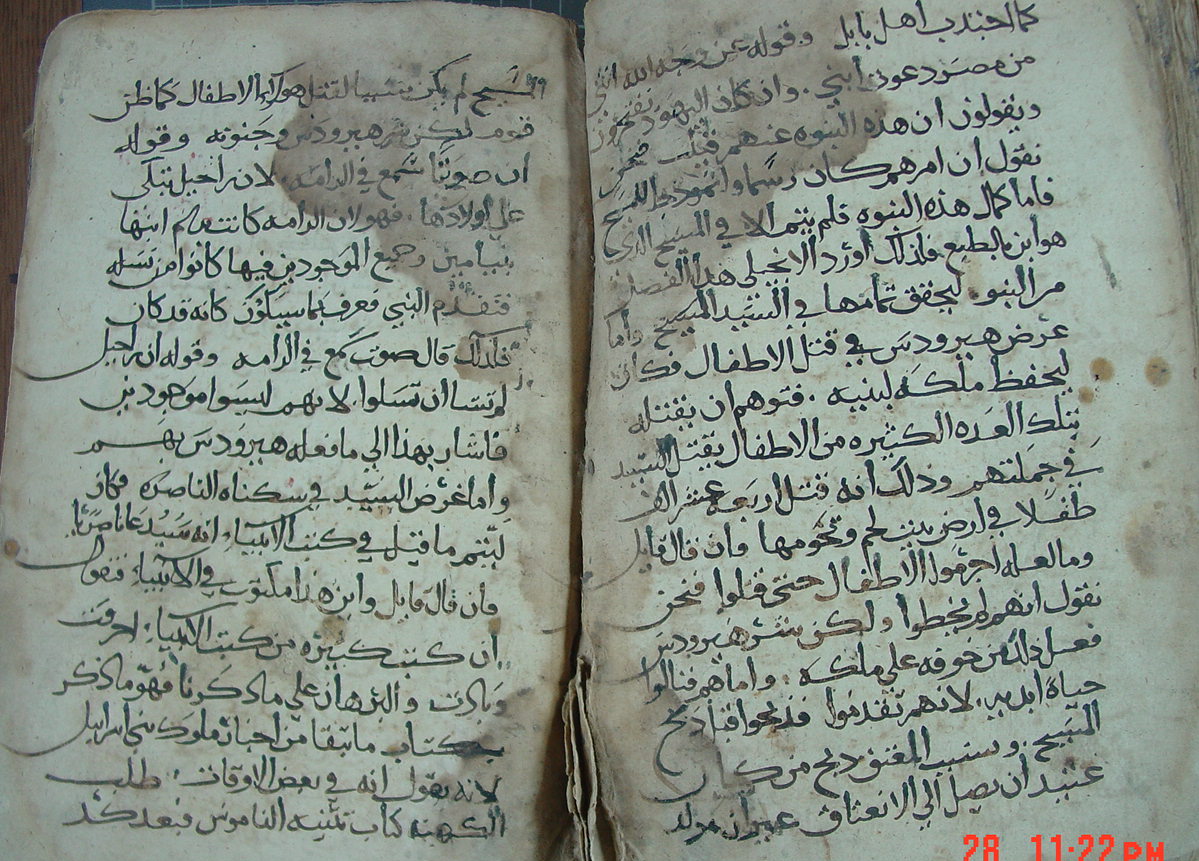 كما اجتذب اهل بابل وقوله عن وجه الله انني
من مصر دعوت ابني . وان كان اليهود
ويقولون ان هذه النبوه عنهم قيلت فنحن
نقول ان امرهم كان رسما وانموذجا للمسيح
فاما كمال هذه النبوه فلم يتم الا في المسيح الذي
هو ابن بالطبع فلذلك اورد الانجيلي هدا الفصل
من النبوه ليحقق تمامها في السيد المسيح واما
غرض هيرودس في قتل الاطفال فكان
ليحفظ ملكه لبنيه . فتوهم ان بقتله
بتلك العده الكثيره من الاطفال يقتل السيد
في جملتهم وذلك انه قتل اربعه عشر الف
طفلا في ارض بيت لحم وتخومها وان قال قايل
وما العله اجرموا الاطفال حتى قتلوا فنحن
نقول انهم لم يخطوا ولكن بشر هيرودس
فعل ذلك من خوفه على ملكه . واما هم فنالوا
حياة ابديه . لانهم تقدموا فذبحوا قبل ذبح
المسيح . وسبب المغنق ذبح من كان
عتيد ان يصل الي الانعتاق
28 11:22 PM
المسيح لم يكن سببا لقتل هولاء الاطفال كما ظن
قوم لكن شر هيرودس وجنونه وقوله
ان صوتا سمع في الرامه . لان راحيل تبكي
علي اولادها . فهو لان الرامه كانت
بنيامين وجميع الموجودين فيها كانوا من نسله
فتقدم النبي فعرف بما سيكون كانه قد كان
فلذلك قال صوت سمع في الرامه وقوله ان راحيل
لم تشا ان تسلوا . لانهم ليسوا موجودين
فاشار بهذا الي ما فعله هيرودس بهم
واما غرض السيد في سكناه الناصره فكان
ليتم ما قيل في كتب الانبياء . انه سيدعا ناصريا
فان قال قايل واين هذا مكتوب في الانبياء فنقول
ان كتب كثيره من كتب الانبياء احرقت
وبادت والبرهان علي ما ذكرنا فهو ما ذكر
بكتاب ما تبقا من اخبار ملوك بني اسرايل
لانه يقول انه في بعض الاوقات . طلب
الكهنه كتاب تثنيه الناموس فبعد كد